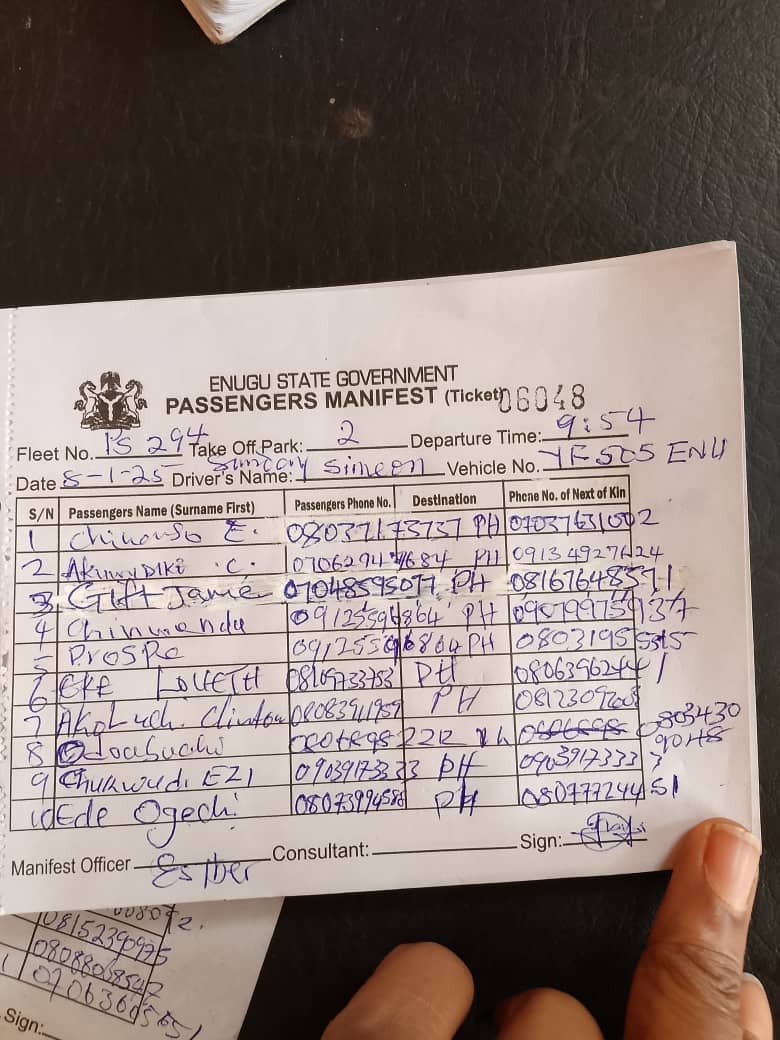 ENUGU STATE GOVERNMENT
PASSENGERS MANIFEST (Ticket) 06048
Fleet No. 1's 294 Take Off Park: 2 Departure Time: 9:54
Date 8-1-25 Driver's Name: Sunday Simeon Vehicle No. YF505 ENU
S/N Passengers Name (Surname First) Passengers Phone No. Destination Phone No. of Next of Kin
1 Chinonso E. 08037173737 PH 07037631002
2 C. PH 09134927624
3 Gift Jame 07048595077 PH 08167648571
4 Chinwendu 09125596864 PH
5 Prospe 09125596864 PH
6 EKE LOVETH 08109733753 PH
7 Akoluch. Clinton 08083911959 PH 0812309
8 Odoabuchi 0803430
9048
9 Chukwudi EZI 09039173333 PH 09039173333
10 Ede Ogechi 08073994588 PH 08077724451
Manifest Officer Esther Consultant: Sign:
2.
08152390975
08088068547
Sign: